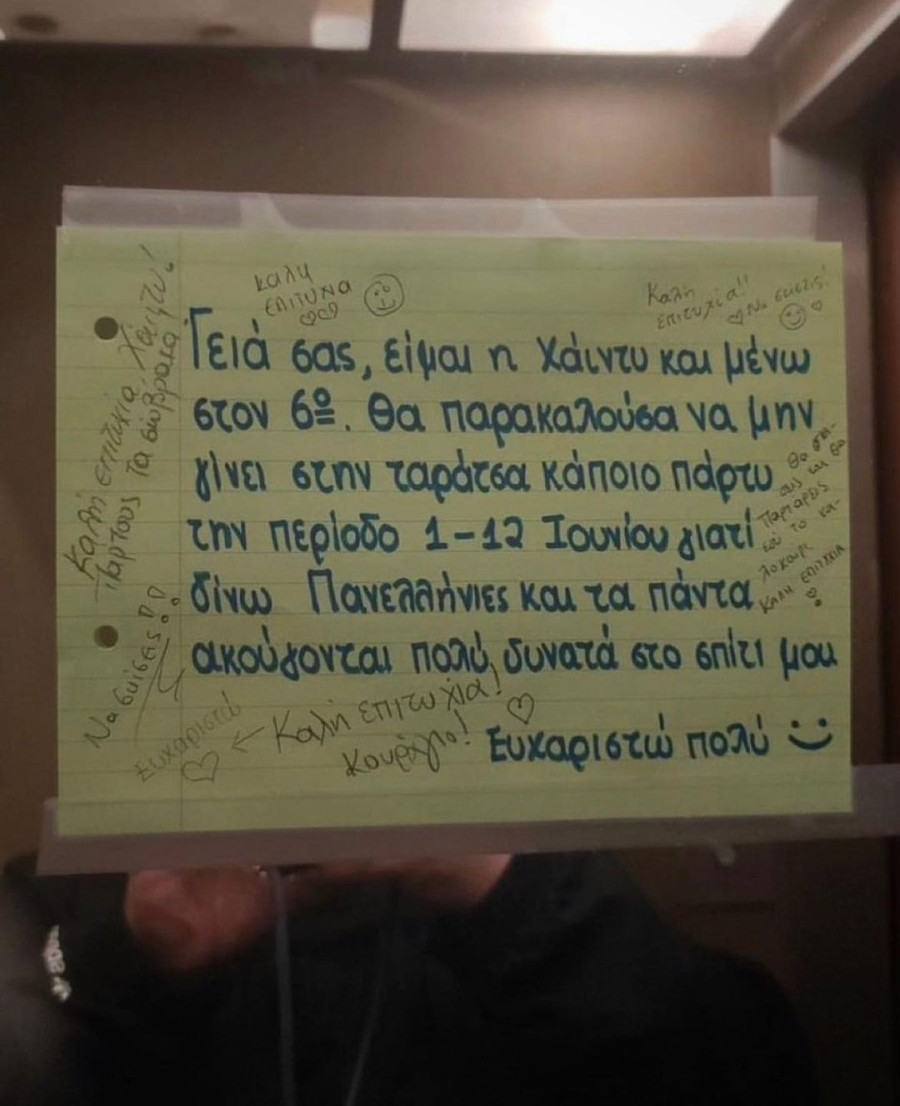 Καλή
επιτυχία
Καλή
επιτυχία!! Να σκίσεις!
Γειά σας, είμαι η Χάιντυ και μένω
στον 6º. Θα παρακαλούσα να μην
γίνει στην ταράτσα κάποιο πάρτυ
την περίοδο 1-12 Ιουνίου γιατί
δίνω Πανελλήνιες και τα πάντα
ακούγονται πολύ δυνατά στο σπίτι μου
Ευχαριστώ πολύ
Καλή επιτυχία Χάιντυ!
Παρτους τα σώβρακα
Να σκίσεις!!
Ευχαριστώ
← Καλή επιτυχία!
Κουράγιο!
Θα
παρταρεις
ΚΑΛΗ ΕΠΙΤΥΧΙΑ